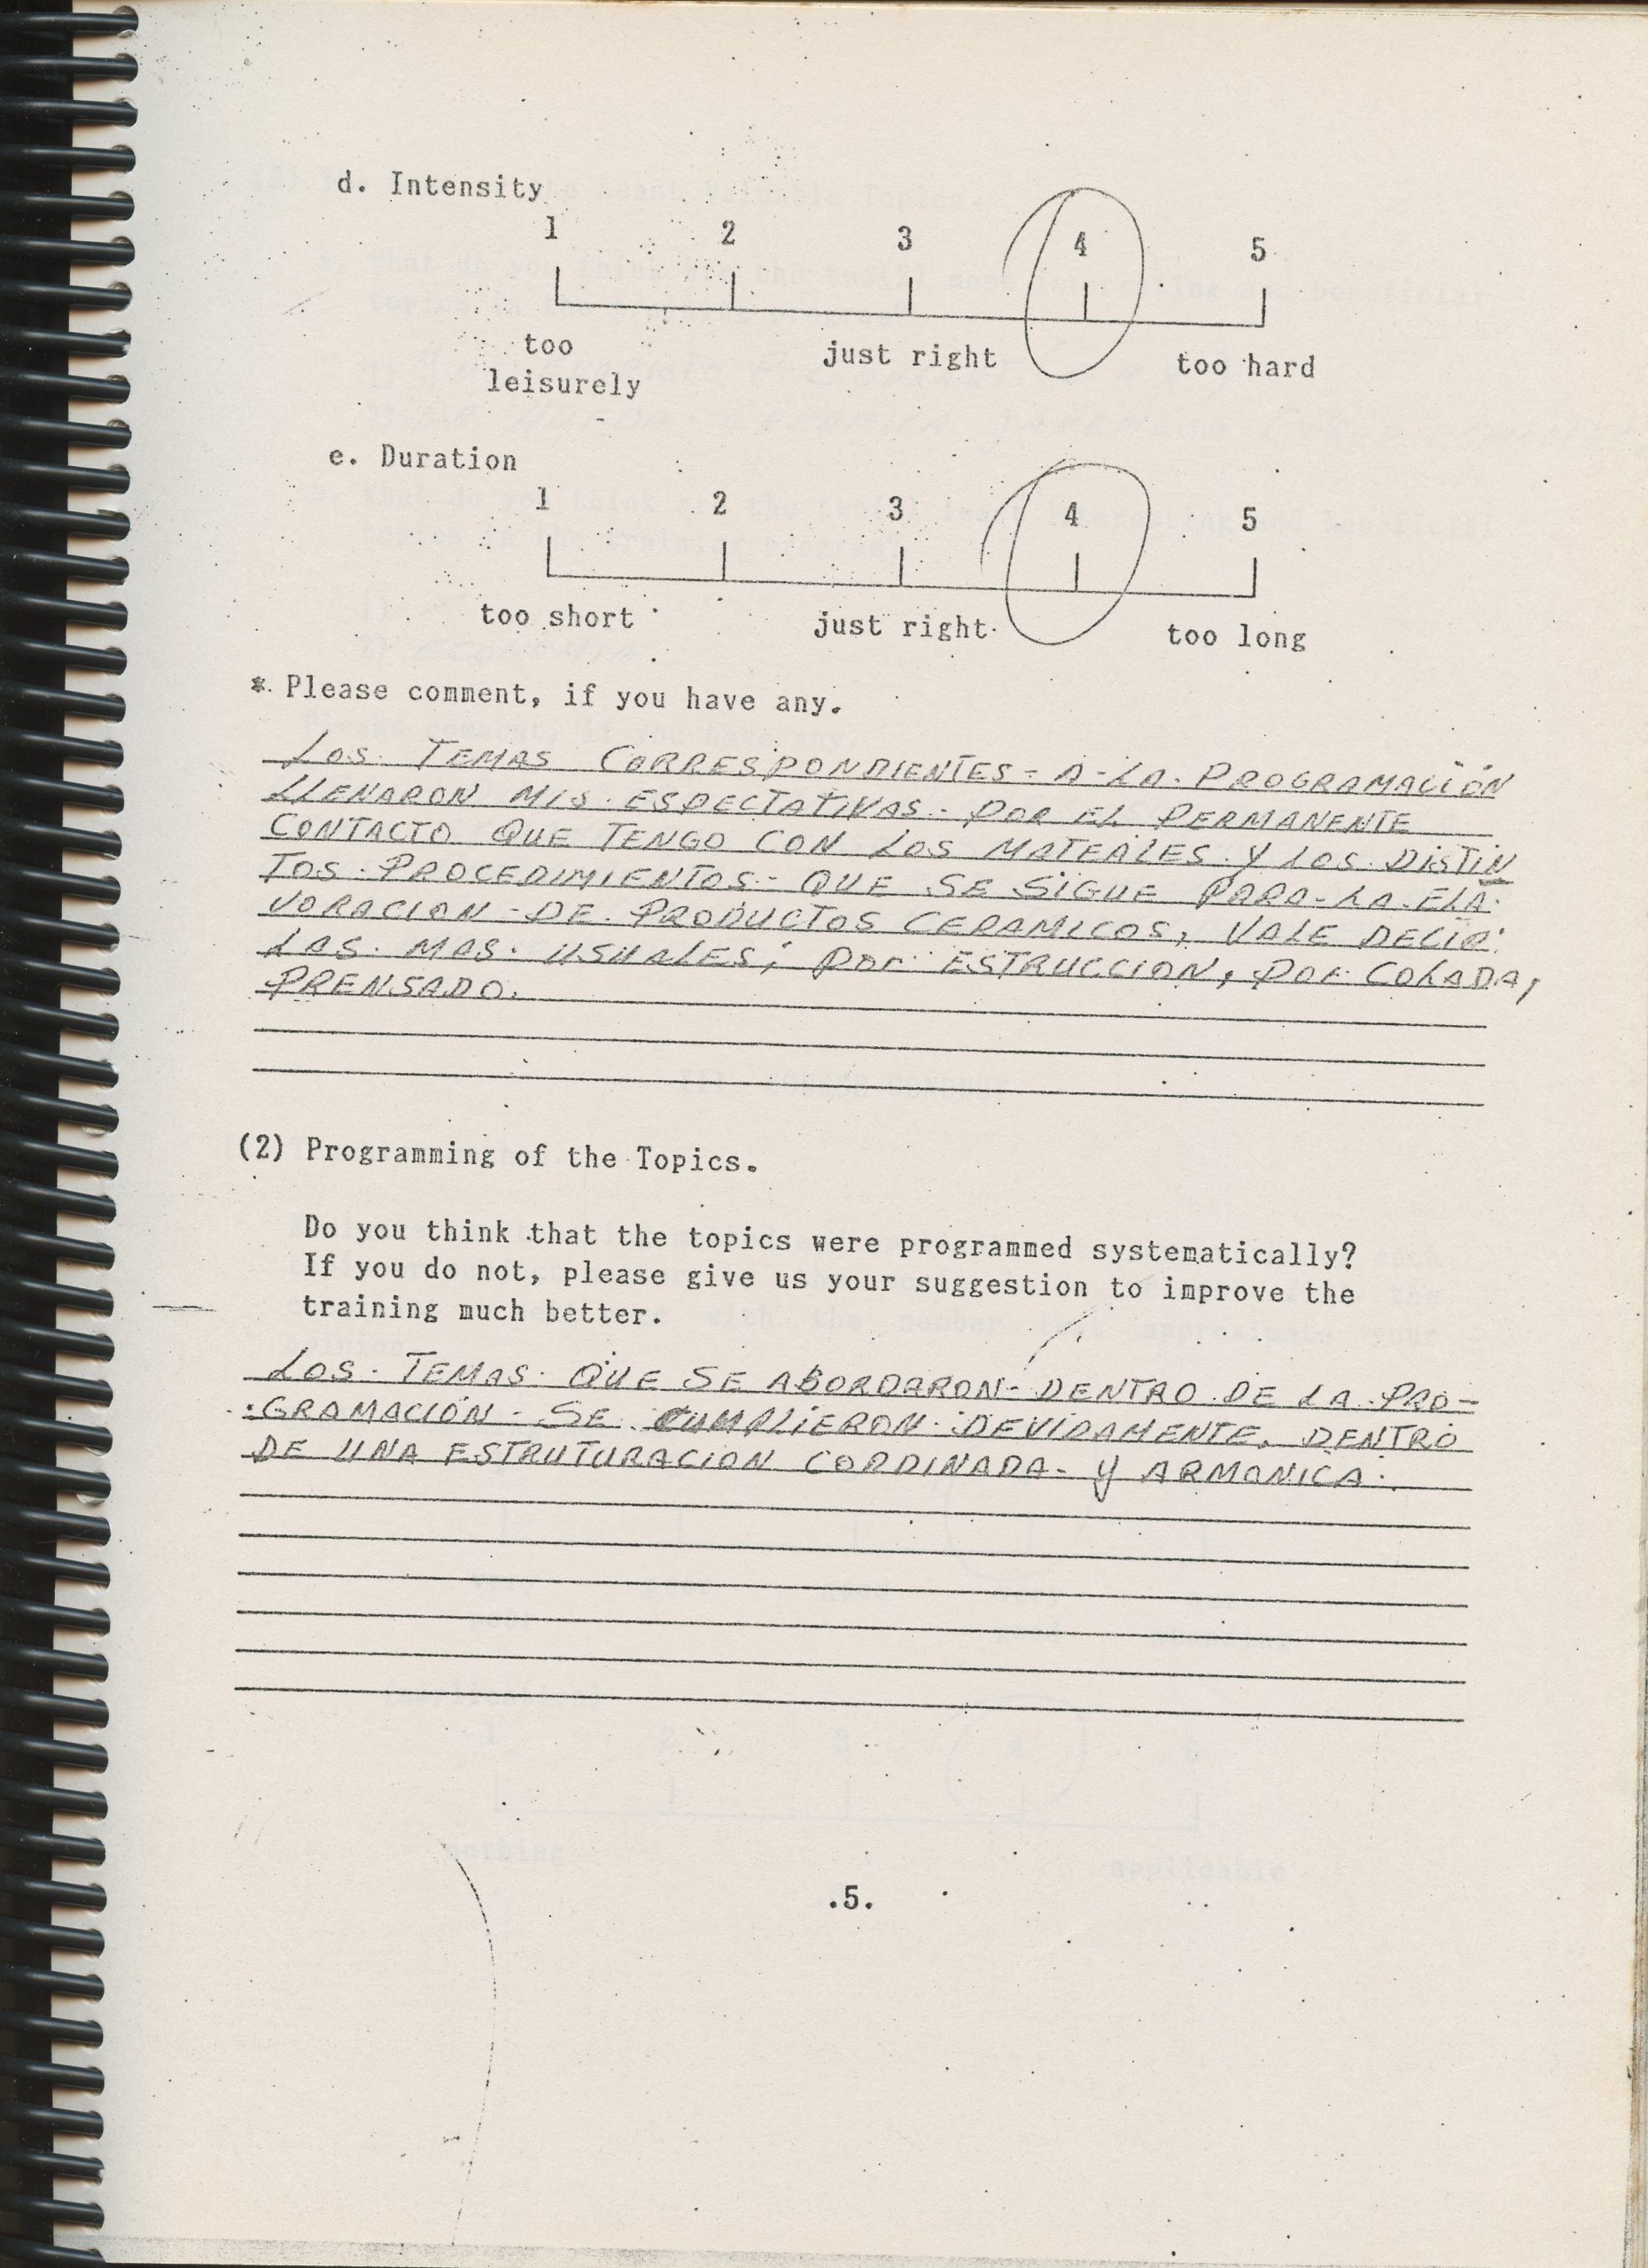 d. Intensity
1 2 3 4 5
too just right too hard
leisurely
e. Duration
1 2 3 4 5
too short just right too long
*. Please comment, if you have any.
LOS TEMAS CORRESPONDIENTES - A - LA - PROGRAMACIÓN
LLENARON MIS ESPECTATIVAS - POR EL PERMANENTE
CONTACTO QUE TENGO CON LOS MATEALES Y LOS DISTIN
TOS PROCEDIMIENTOS - QUE SE SIGUE PARA - LA - ELA -
VORACION - DE PRODUCTOS CERAMICOS, VALE DECIR:
LAS MAS USUALES; POR ESTRUCCION, POR COLADA,
PRENSADO.
(2) Programming of the Topics.
Do you think that the topics were programmed systematically?
If you do not, please give us your suggestion to improve the
training much better.
LOS TEMAS QUE SE ABORDARON - DENTRO DE LA PRO-
GRAMACIÓN - SE CUMPLIERON DEVIDAMENTE, DENTRO
DE UNA ESTRUTURACION CORDINADA - Y ARMONICA.
.5.